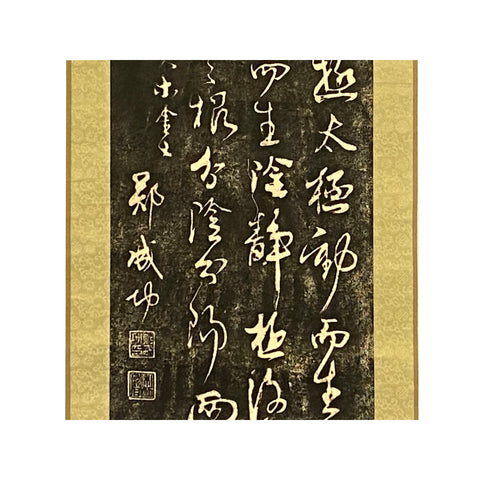 極太極動而生
而生陰靜極復
根分陰分陽兩
鄭成功